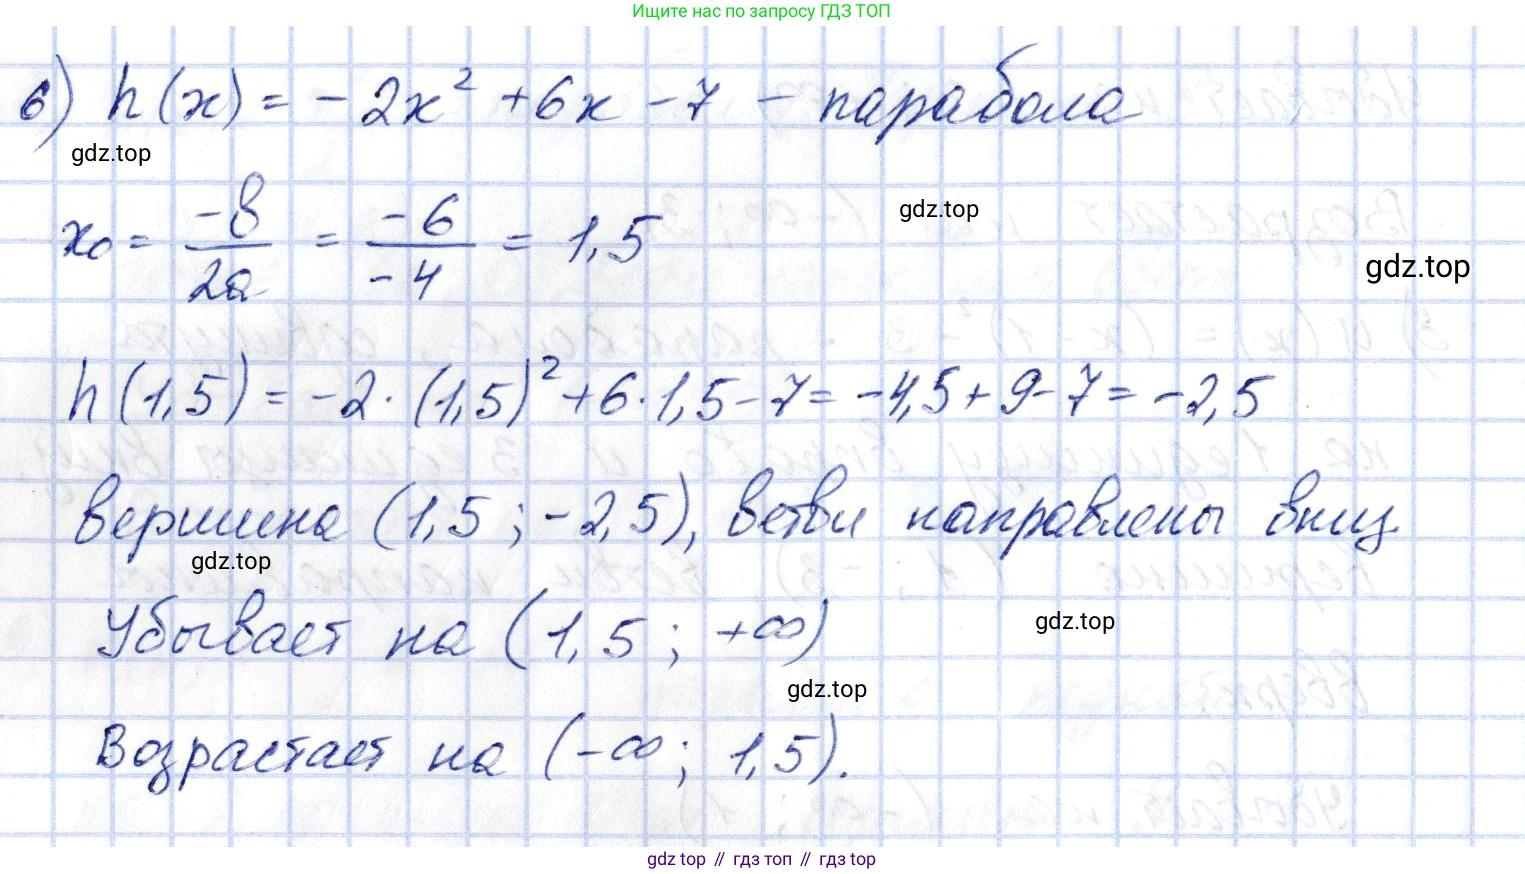 Ищите нас по запросу ГДЗ ТОП
6) h(x) = -2x² + 6x - 7 - парабола
gdz.top
x₀ = -в/2a = -6/-4 = 1,5
gdz.top
gdz.top
h(1,5) = -2·(1,5)² + 6·1,5 - 7 = -4,5 + 9 - 7 = -2,5
вершина (1,5 ; -2,5), ветви направлены вниз
gdz.top
Убывает на (1,5 ; +∞)
gdz.top
gdz.top
Возрастает на (-∞ ; 1,5).
gdz.top // гдз топ // гдз top